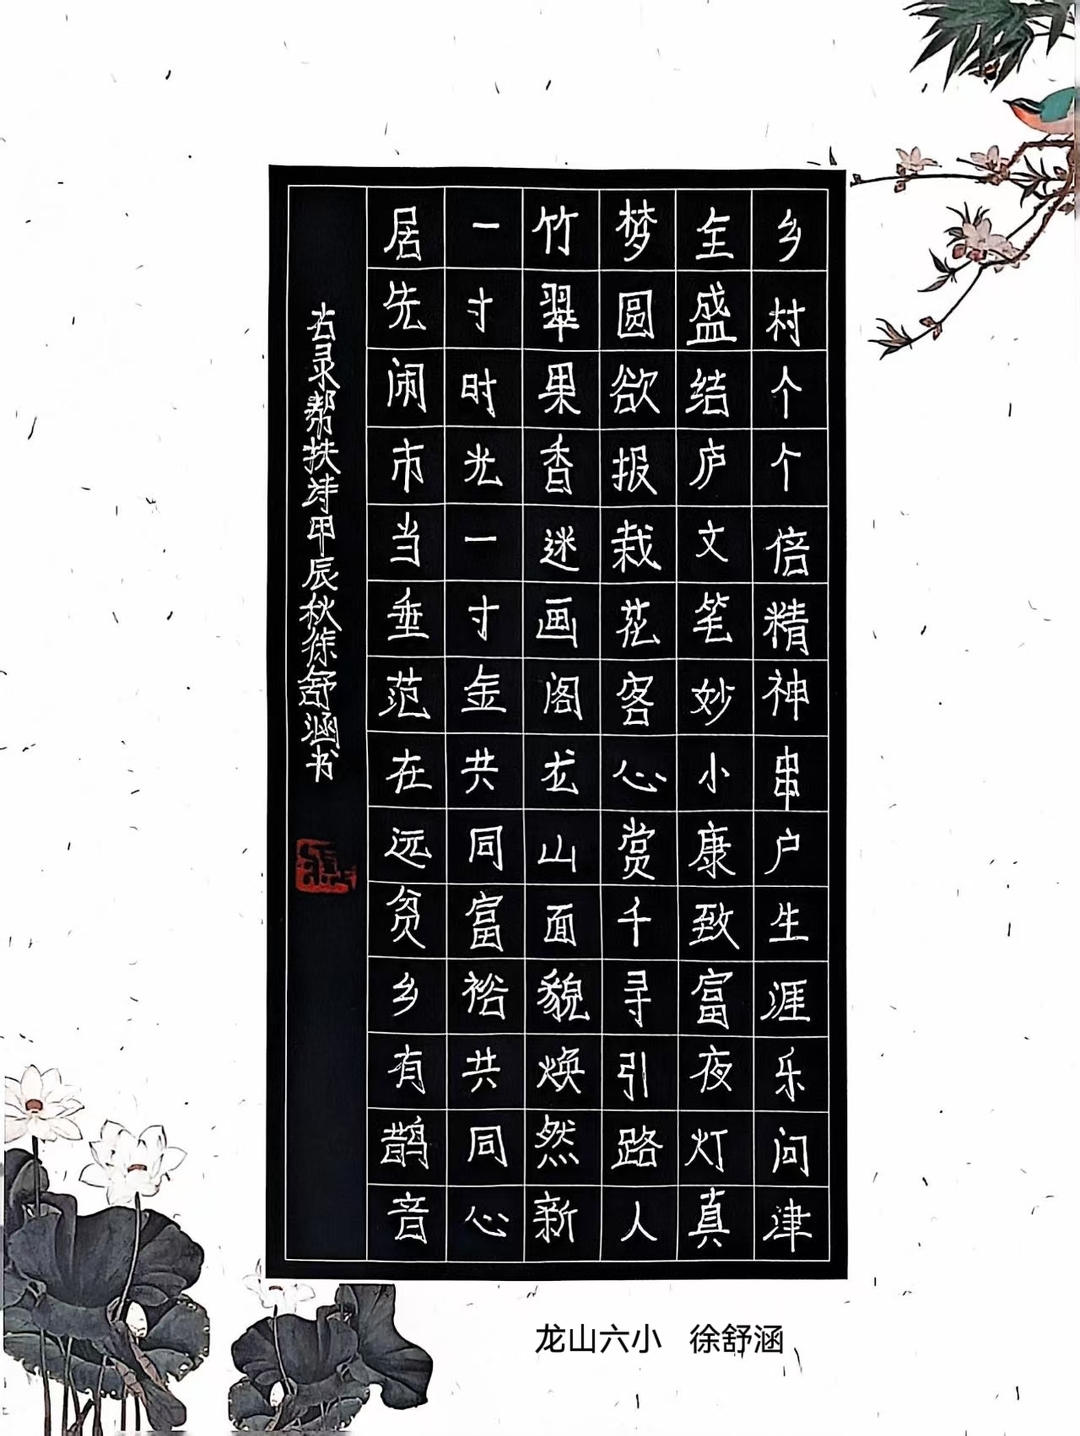 乡村个个倍精神串户生涯乐问津
全盛结庐文笔妙小康致富夜灯真
梦圆欲报栽花客心赏千寻引路人
竹翠果香迷画阁龙山面貌焕然新
一寸时光一寸金共同富裕共同心
居先闹市当垂范在远贫乡有鹊音
右录帮扶诗甲辰秋徐舒涵书
龙山六小 徐舒涵